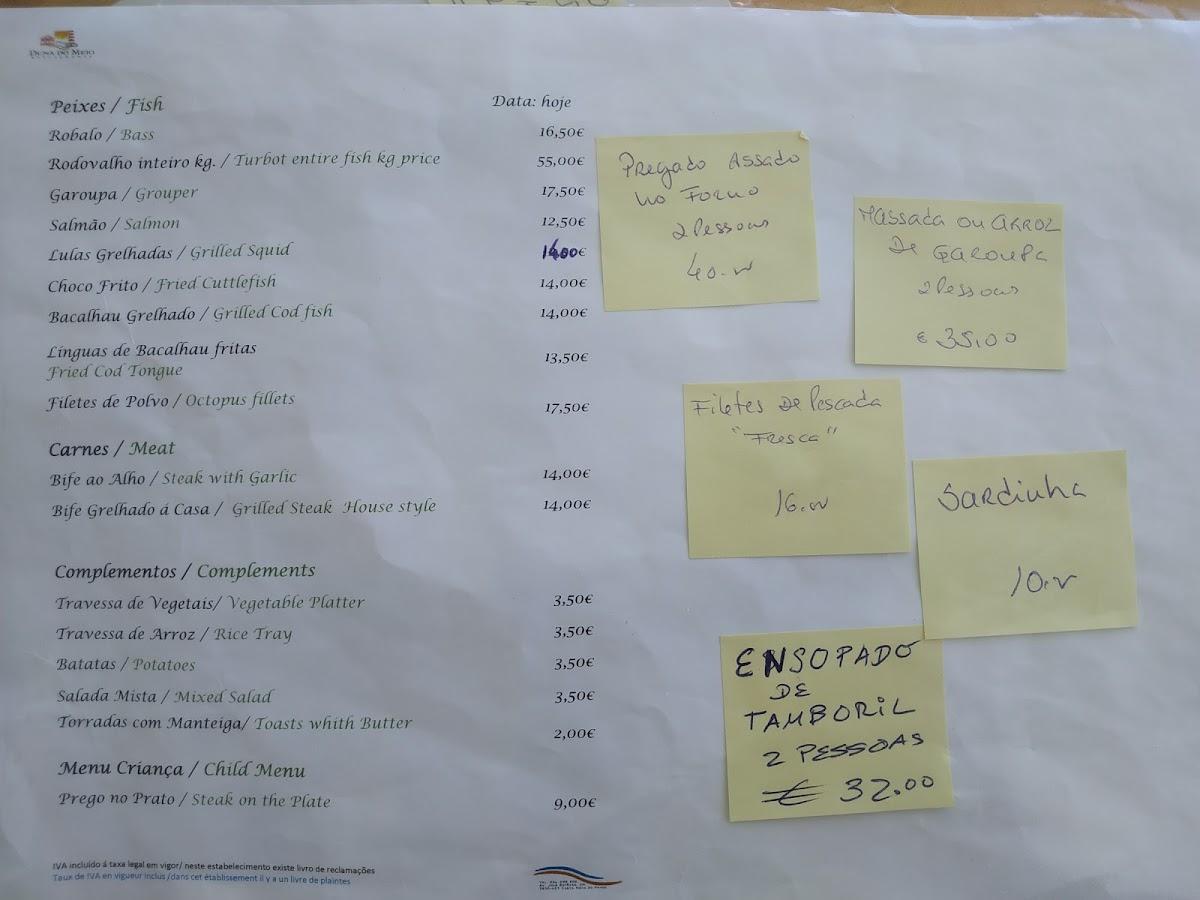 DUNA DO MEIO
Peixes / Fish
Data: hoje
Robalo / Bass 16,50€
Rodovalho inteiro kg. / Turbot entire fish kg price 55,00€
Garoupa / Grouper 17,50€
Salmão / Salmon 12,50€
Lulas Grelhadas / Grilled Squid 14,00€
Choco Frito / Fried Cuttlefish 14,00€
Bacalhau Grelhado / Grilled Cod fish 14,00€
Línguas de Bacalhau fritas 13,50€
Fried Cod Tongue
Filetes de Polvo / Octopus fillets 17,50€
Carnes / Meat
Bife ao Alho / Steak with Garlic 14,00€
Bife Grelhado á Casa / Grilled Steak House style 14,00€
Complementos / Complements
Travessa de Vegetais/ Vegetable Platter 3,50€
Travessa de Arroz / Rice Tray 3,50€
Batatas / Potatoes 3,50€
Salada Mista / Mixed Salad 3,50€
Torradas com Manteiga/ Toasts whith Butter 2,00€
Menu Criança / Child Menu
Prego no Prato / Steak on the Plate 9,00€
IVA incluído á taxa legal em vigor/ neste estabelecimento existe livro de reclamações
Taux de IVA en vigueur inclus /dans cet établissement il y a un livre de plaintes
Pregado Assado
no Forno
2 Pessoas
40.00
Massada ou Arroz
De Garoupa
2 Pessoas
€ 35,00
Filetes De Pescada
"Fresca"
16.00
Sardinha
10.00
ENSOPADO
DE
TAMBORIL
2 PESSOAS
€ 32.00